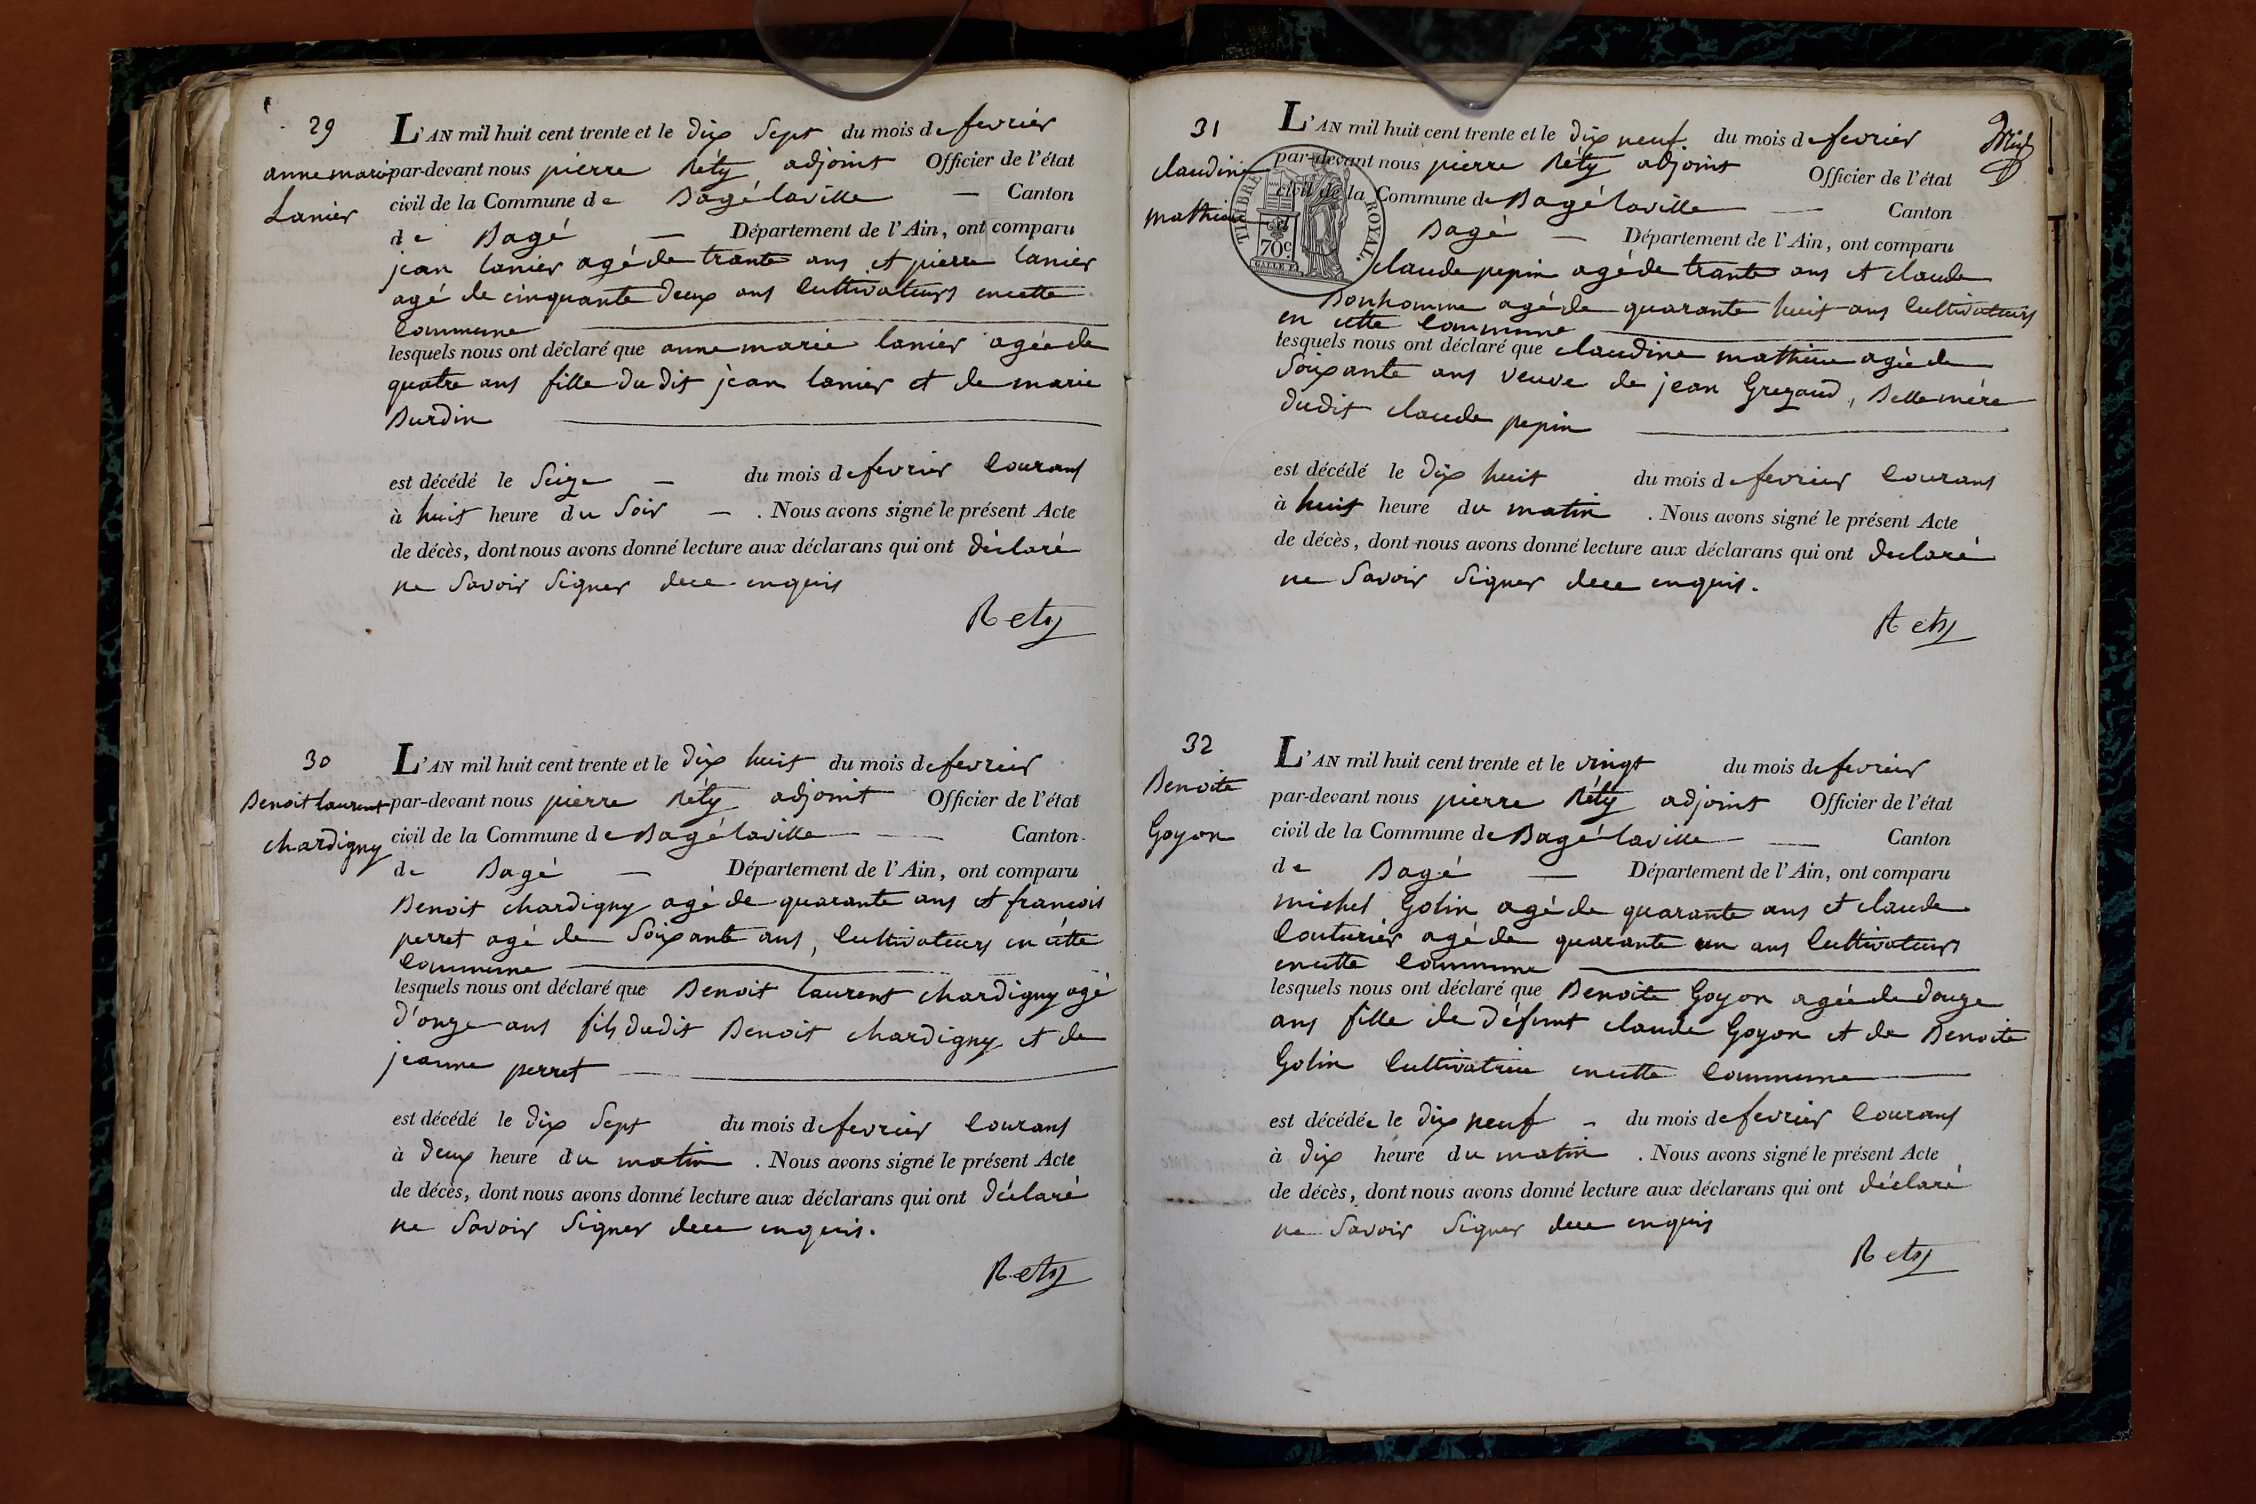 29
anne marie
Lanier
L'AN mil huit cent trente et le dix Sept du mois de fevrier
par-devant nous pierre Réty adjoint Officier de l'état
civil de la Commune de Bagélaville — Canton
de Bagé — Département de l'Ain, ont comparu
jean lanier agé de trante ans et pierre lanier
agé de cinquante deux ans Cultivateurs en cette
Commune
lesquels nous ont déclaré que anne marie lanier agée de
quatre ans fille du dit jean lanier et de marie
Burdin
est décédé le Seize — du mois de fevrier Courant
à huit heure du Soir — . Nous avons signé le présent Acte
de décès, dont nous avons donné lecture aux déclarans qui ont déclaré
ne Savoir Signer de ce enquis
Rety
30
Benoit laurent
chardigny
L'AN mil huit cent trente et le dix huit du mois de fevrier
par-devant nous pierre Réty adjoint Officier de l'état
civil de la Commune de Bagélaville — Canton
de Bagé — Département de l'Ain, ont comparu
Benoit chardigny agé de quarante ans et francois
perret agé de Soixante ans, Cultivateurs en cette
Commune
lesquels nous ont déclaré que Benoit laurent chardigny agé
d'onze ans fils dudit Benoit chardigny et de
jeanne perret
est décédé le dix Sept du mois de fevrier Courant
à deux heure du matin . Nous avons signé le présent Acte
de décès, dont nous avons donné lecture aux déclarans qui ont déclaré
ne Savoir Signer de ce enquis.
Rety
31
claudine
mathieu
TIMBRE ROYAL.
70c.
L'AN mil huit cent trente et le dix neuf du mois de fevrier
par-devant nous pierre Réty adjoint Officier de l'état
civil de la Commune de Bagélaville — Canton
Bagé — Département de l'Ain, ont comparu
claude pepin agé de trante ans et claude
Bonhomme agé de quarante huit ans Cultivateurs
en cette Commune
lesquels nous ont déclaré que claudine mathieu agée de
Soixante ans veuve de jean Grezaud, Belle mère
dudit claude pepin
est décédé le dix huit du mois de fevrier Courant
à huit heure du matin . Nous avons signé le présent Acte
de décès, dont nous avons donné lecture aux déclarans qui ont declaré
ne Savoir Signer de ce enquis.
Rety
32
Benoite
Goyon
L'AN mil huit cent trente et le vingt du mois de fevrier
par-devant nous pierre Réty adjoint Officier de l'état
civil de la Commune de Bagélaville — Canton
de Bagé — Département de l'Ain, ont comparu
michel Golin agé de quarante ans et claude
Couturier agé de quarante un ans Cultivateurs
en cette Commune
lesquels nous ont déclaré que Benoite Goyon agée de douze
ans fille de défunt claude Goyon et de Benoite
Golin Cultivatrice en cette Commune
est décédée le dix neuf - du mois de fevrier Courant
à dix heure du matin . Nous avons signé le présent Acte
de décès, dont nous avons donné lecture aux déclarans qui ont déclaré
ne Savoir Signer de ce enquis
Rety